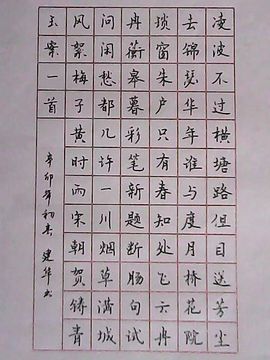 凌波不过横塘路但目送芳尘
去锦瑟华年谁与度月桥花院
琐窗朱户只有春知处飞云冉
冉蘅皋暮彩笔新题断肠句试
问闲愁都几许一川烟草满城
风絮梅子黄时雨宋朝贺铸青
玉案一首
辛卯年初春 建华书